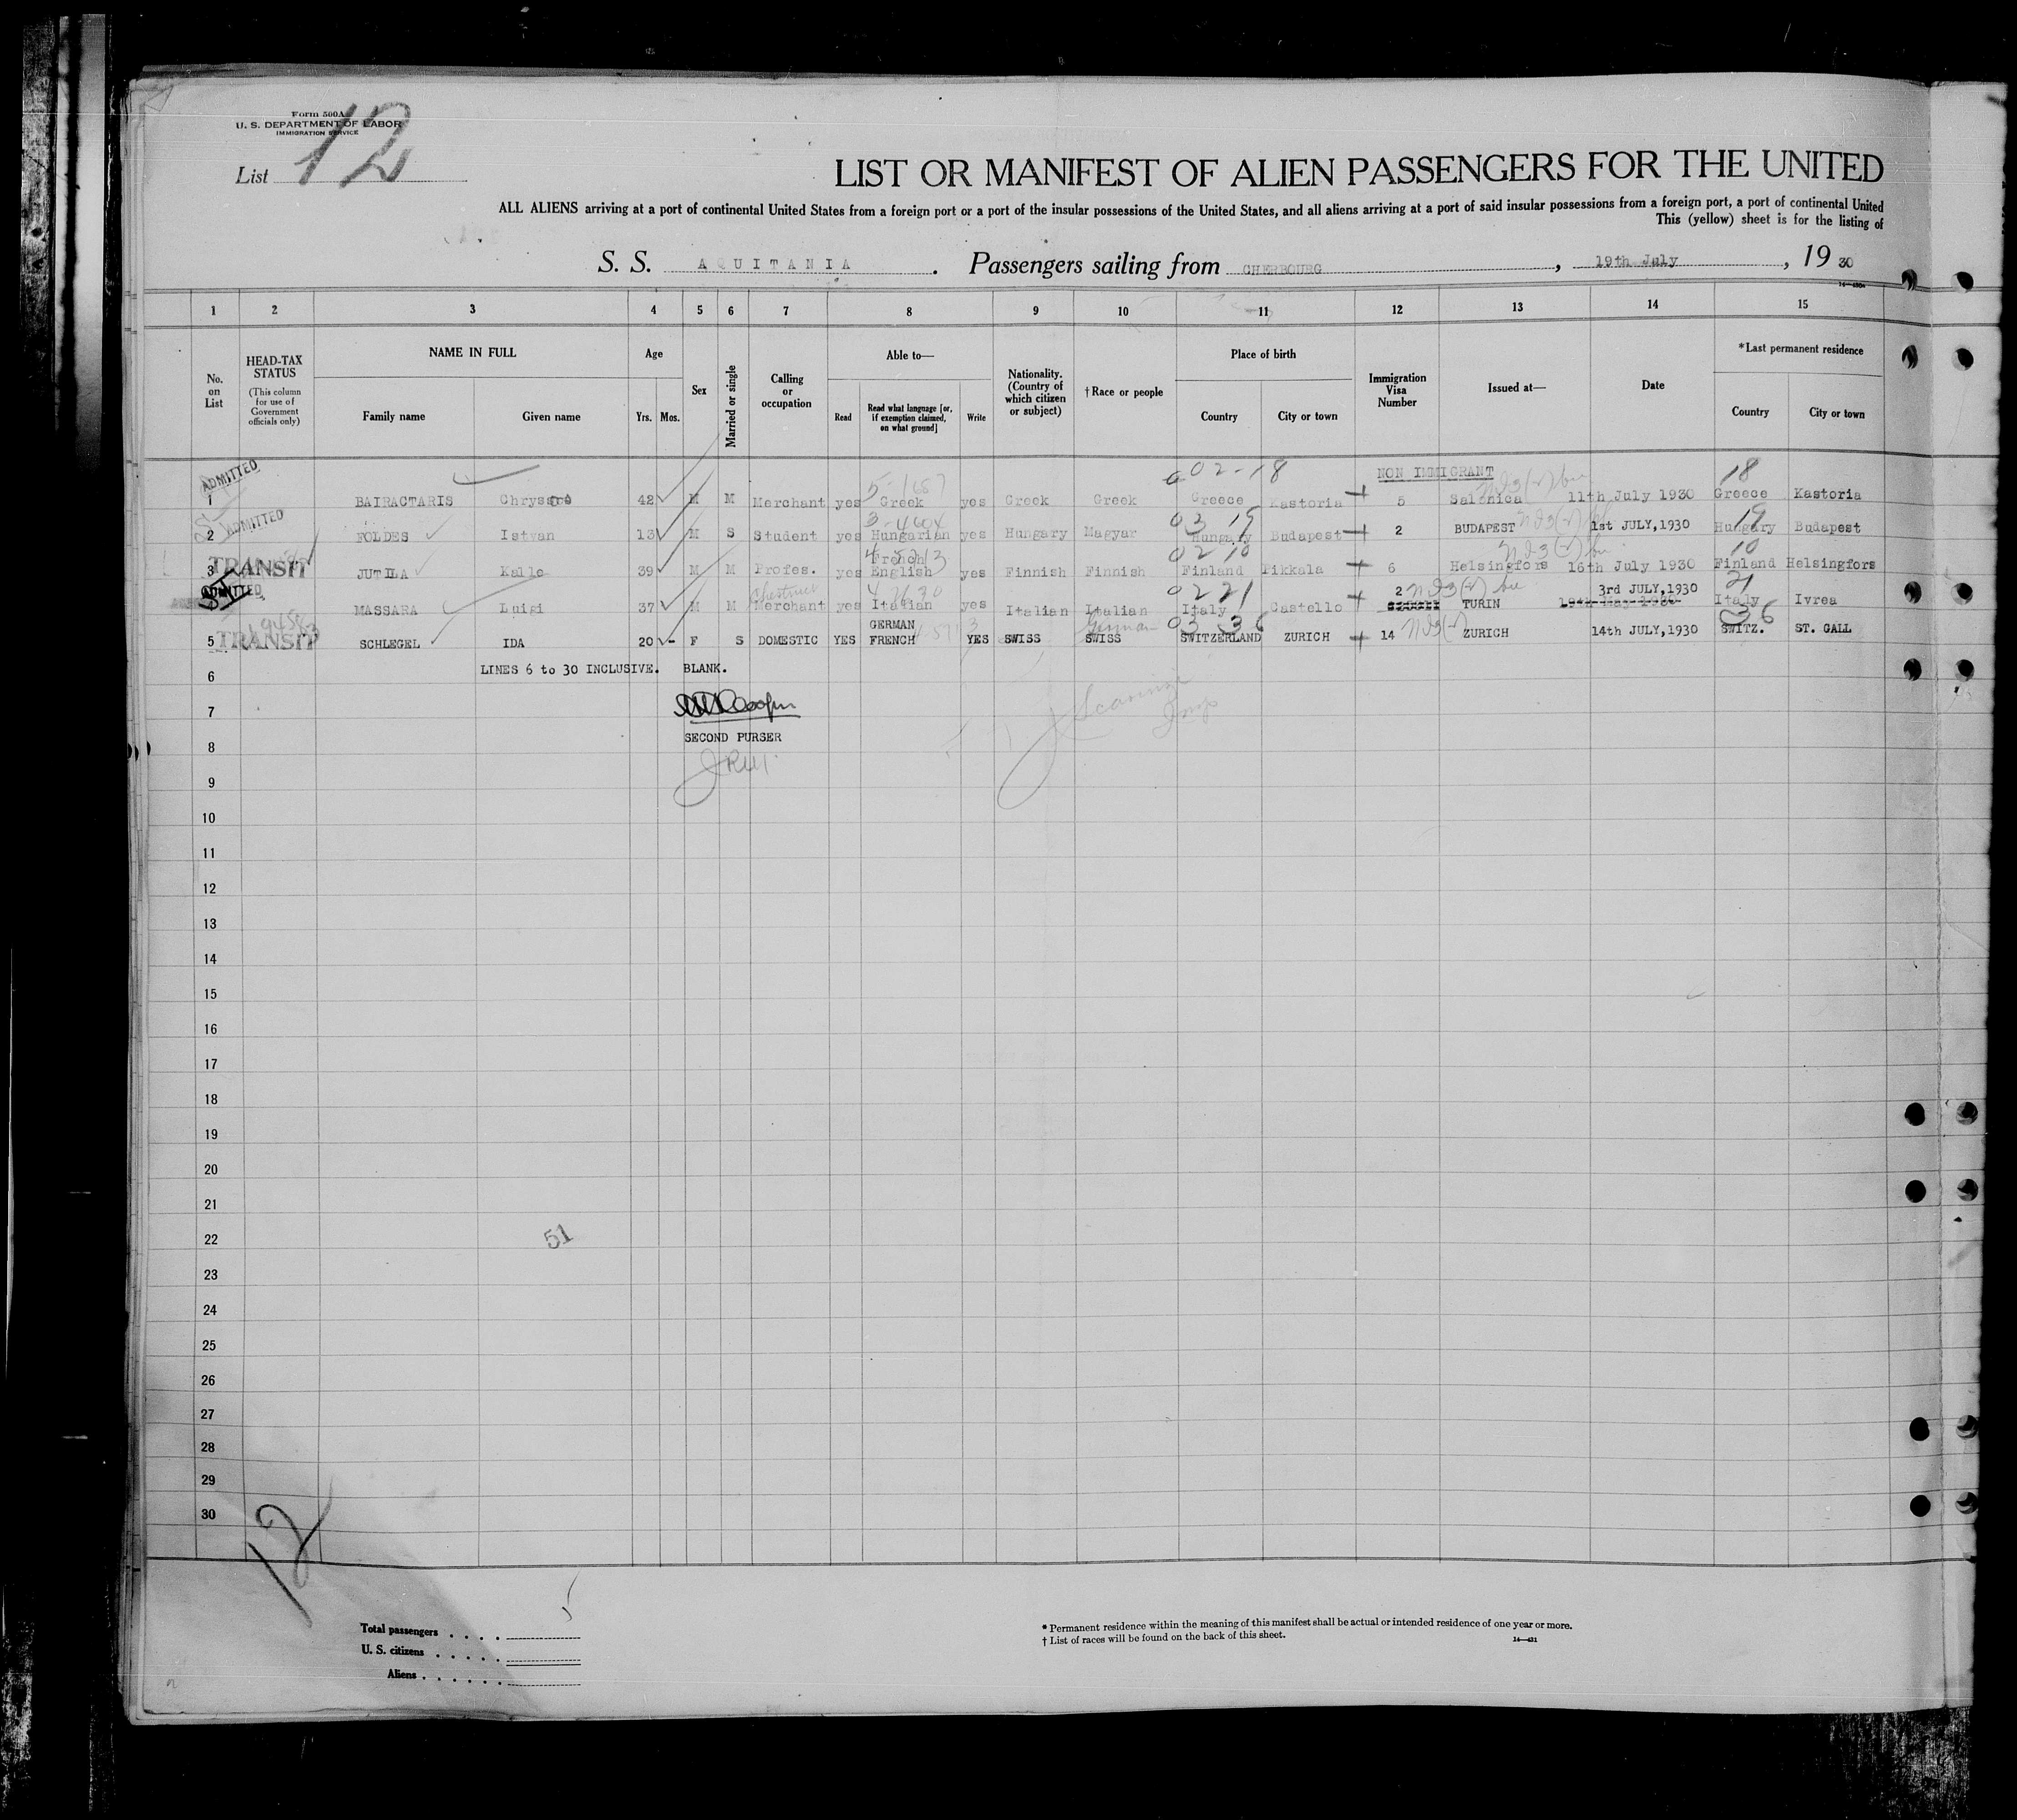 Form 500A
U. S. DEPARTMENT OF LABOR
IMMIGRATION SERVICE
List 12
LIST OR MANIFEST OF ALIEN PASSENGERS FOR THE UNITED
ALL ALIENS arriving at a port of continental United States from a foreign port or a port of the insular possessions of the United States, and all aliens arriving at a port of said insular possessions from a foreign port, a port of continental United
This (yellow) sheet is for the listing of
S. S. AQUITANIA . Passengers sailing from CHERBOURG , 19th July , 19 30
1 2 3 4 5 6 7 8 9 10 11 12 13 14 15
No. on List
HEAD-TAX STATUS (This column for use of Government officials only)
NAME IN FULL Family name Given name
Age Yrs. Mos.
Sex
Married or single
Calling or occupation
Able to— Read Read what language [or, if exemption claimed, on what ground] Write
Nationality. (Country of which citizen or subject)
†Race or people
Place of birth Country City or town
Immigration Visa Number
Issued at—
Date
*Last permanent residence Country City or town
02-18 NON IMMIGRANT 18
ADMITTED 1 BAIRACTARIS 42 M M Merchant yes Greek yes Greek Greek Greece Kastoria 5 Salonica 11th July 1930 Greece Kastoria
03 19 19
ADMITTED 2 FOLDES Istvan 13 M S Student yes Hungarian yes Hungary Magyar Hungary Budapest 2 BUDAPEST 1st JULY,1930 Hungary Budapest
French 02 10 10
TRANSIT 3 JUTILA Kalle 39 M M Profes. yes English yes Finnish Finnish Finland 6 Helsingfors 16th July 1930 Finland Helsingfors
ADMITTED Chestnut 02 21 2 3rd JULY,1930 21
4 MASSARA Luigi 37 M M Merchant yes Italian yes Italian Italian Italy Castello TURIN Italy Ivrea
GERMAN German 03 36 36
TRANSIT 5 SCHLEGEL IDA 20 - F S DOMESTIC YES FRENCH YES SWISS SWISS SWITZERLAND ZURICH 14 ZURICH 14th JULY,1930 SWITZ. ST. GALL
LINES 6 to 30 INCLUSIVE. BLANK.
6
7
SECOND PURSER
8
9
10
11
12
13
14
15
16
17
18
19
20
21
22 51
23
24
25
26
27
28
29
30
12
5
Total passengers
U. S. citizens
Aliens
* Permanent residence within the meaning of this manifest shall be actual or intended residence of one year or more.
† List of races will be found on the back of this sheet.